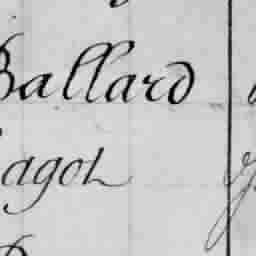 Ballard
agot